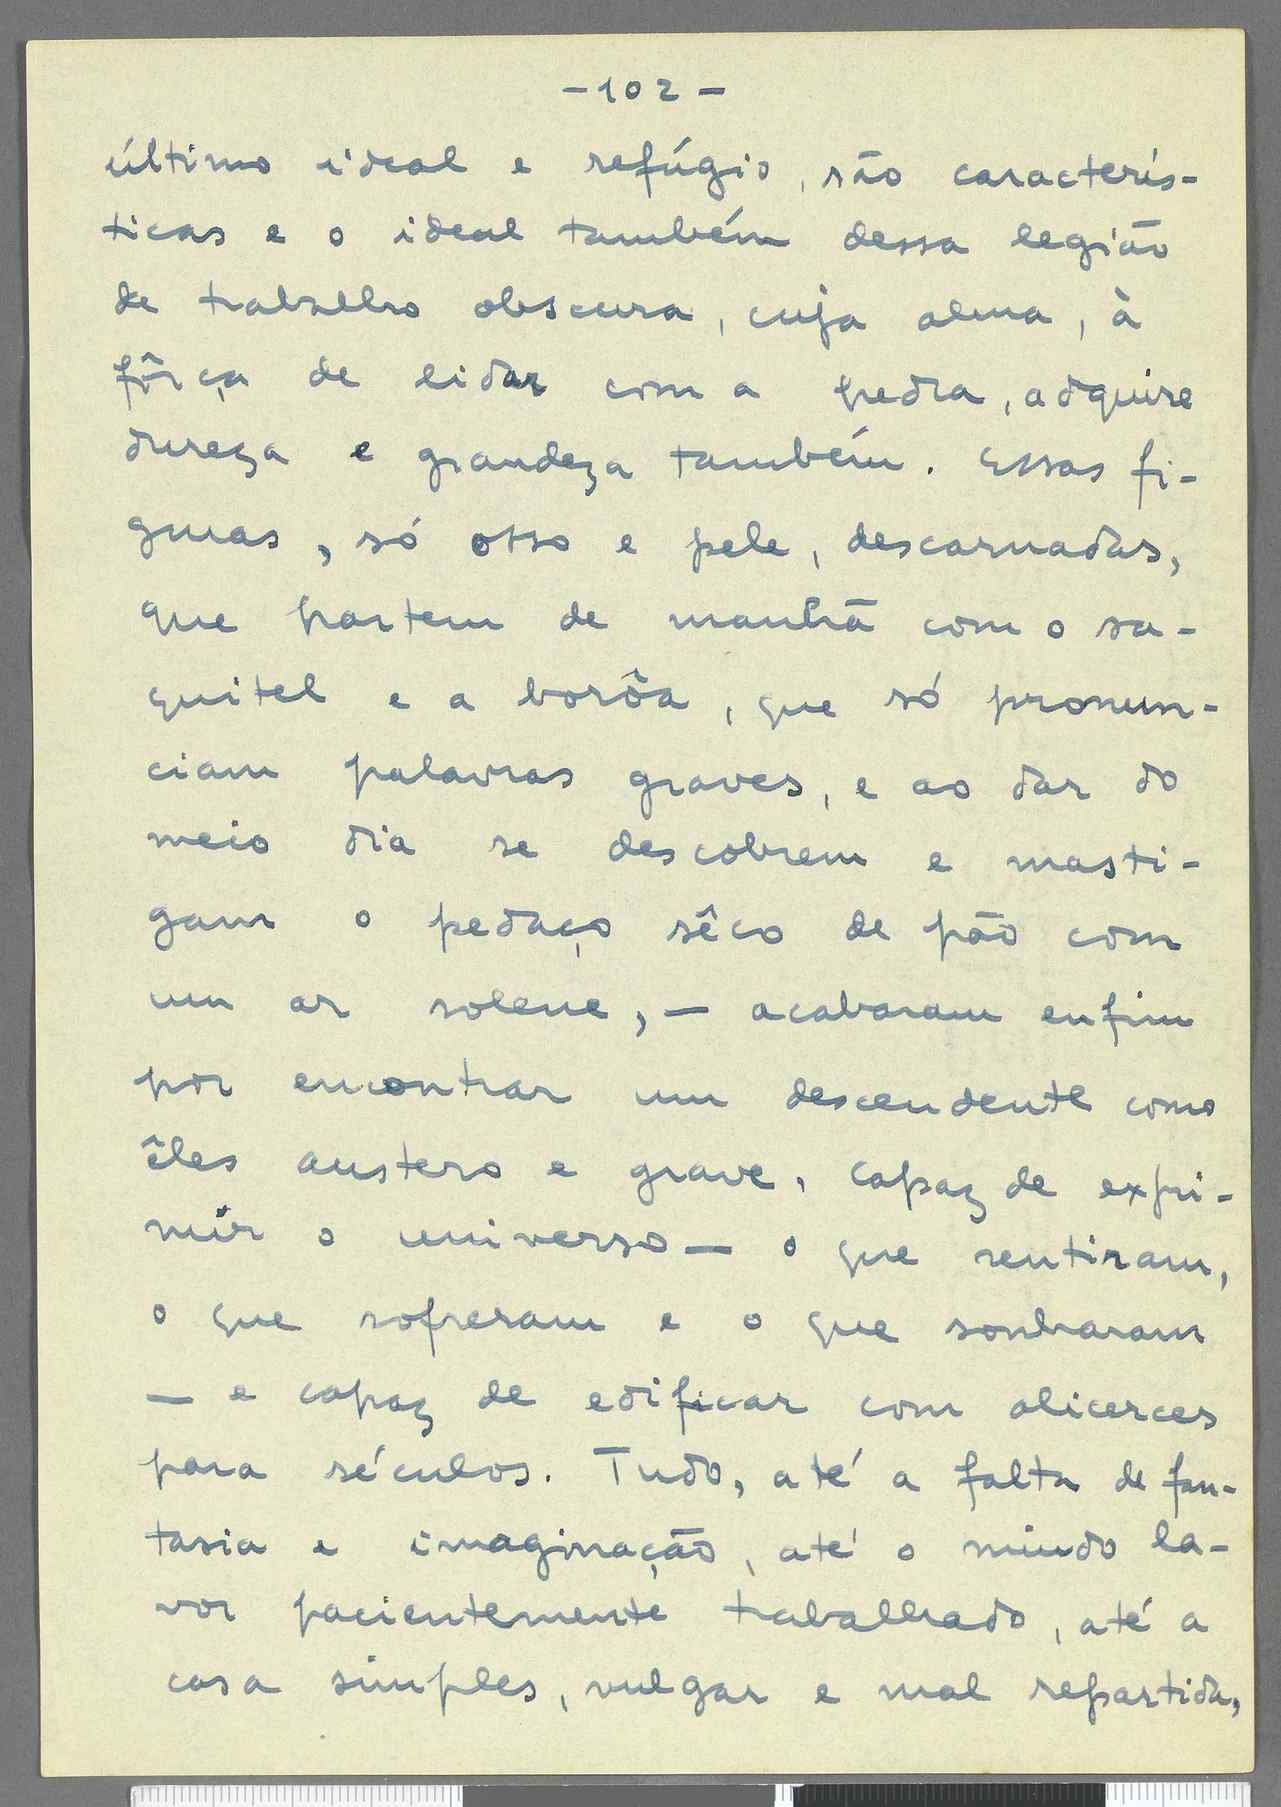 -102-
último ideal e refúgio, são caracterís-
ticas e o ideal também dessa legião
de trabalho obscura, cuja alma, à
fôrça de lidar com a pedra, adquire
dureza e grandeza também. Essas fi-
guras, só osso e pele, descarnadas,
que partem de manhã com o sa-
quitel e a borôa, que só pronun-
ciam palavras graves, e ao dar do
meio dia se descobrem e masti-
gam o pedaço sêco de pão com
um ar solene, — acabaram enfim
por encontrar um descendente como
êles austero e grave, capaz de expri-
mir o universo — o que sentiram,
o que sofreram e o que sonharam
— e capaz de edificar com alicerces
para séculos. Tudo, até a falta de fan-
tasia e imaginação, até o miudo la-
vor pacientemente trabalhado, até a
casa simples, vulgar e mal repartida,